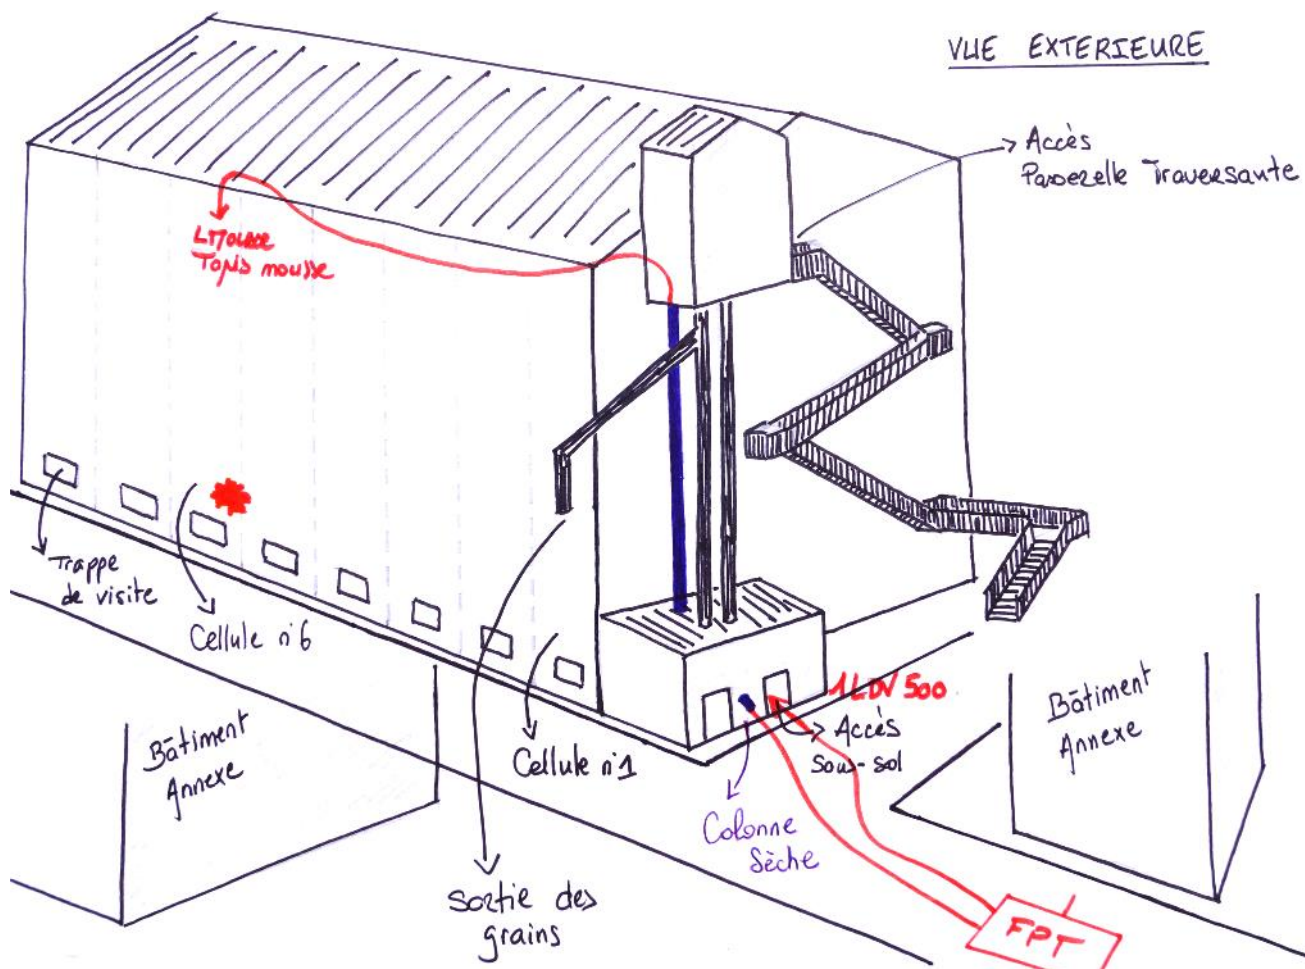 VUE EXTERIEURE
Accès
Passerelle Traversante
LMousse
Tapis mousse
Trappe
de visite
Cellule n°6
Bâtiment
Annexe
Cellule n°1
Sortie des
grains
1LDV 500
Accès
Sous-sol
Colonne
Sèche
Bâtiment
Annexe
FPT